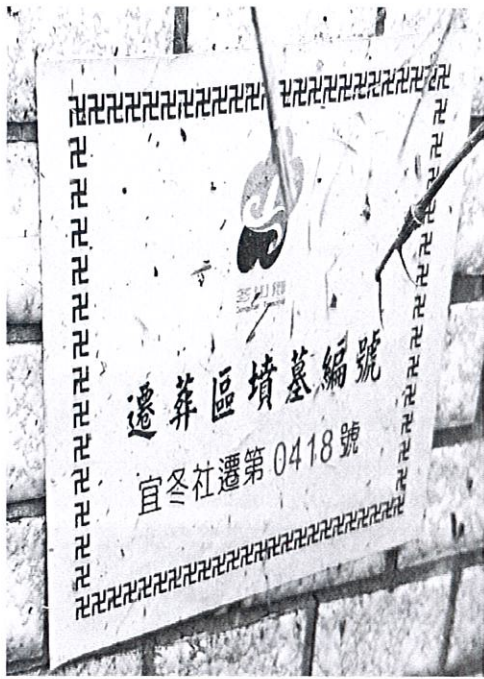 遷葬區墳墓編號
宜冬社遷第0418號